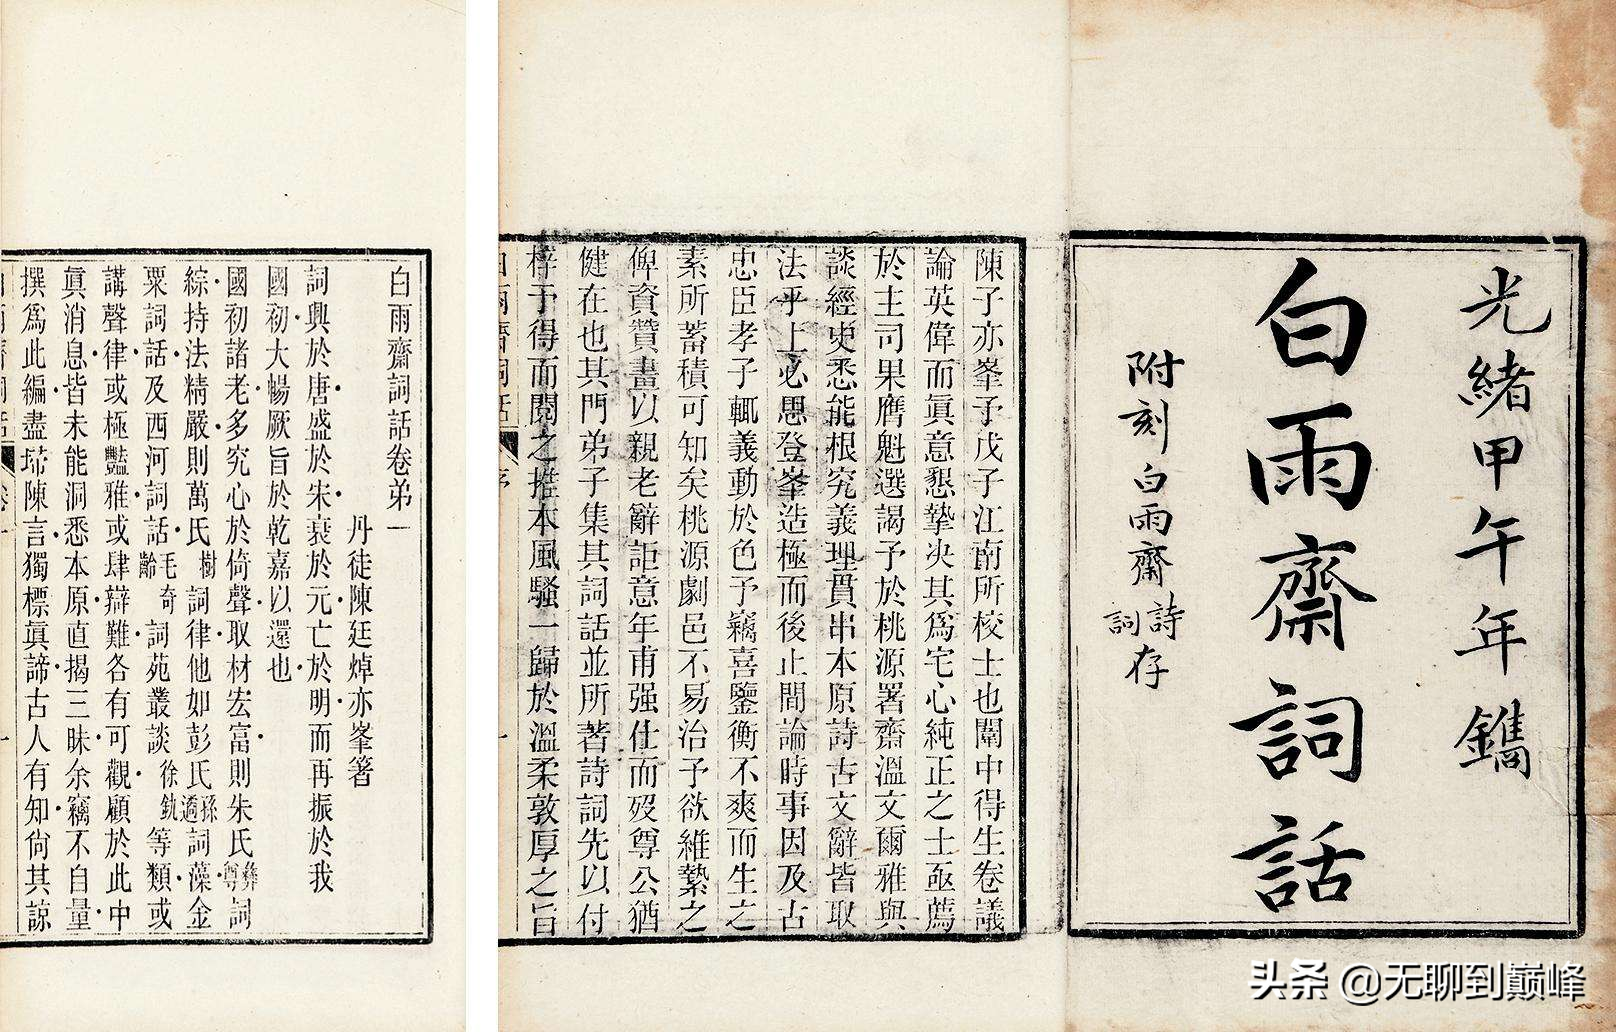 光緒甲午年鐫
白雨齋詞話
附刻白雨齋詩詞存
陳子亦峯予戊子江南所校士也闈中得生卷議
論英偉而眞意懇摯决其爲宅心純正之士亟薦
於主司果膺魁選謁予於桃源署齋溫文爾雅與
談經史悉能根究義理貫串本原詩古文辭皆取
法乎上必思登峯造極而後止間論時事因及古
忠臣孝子輒義動於色予竊喜鑒衡不爽而生之
素所蓄積可知矣桃源劇邑不易治予欲維縶之
俾資贊畫以親老辭詎意年甫强仕而歿尊公猶
健在也其門弟子集其詞話並所著詩詞先以付
梓予得而閱之推本風騷一歸於溫柔敦厚之旨
白雨齋詞話 序 一
白雨齋詞話卷弟一
丹徒陳廷焯亦峯箸
詞興於唐盛於宋衰於元亡於明而再振於我
國初大暢厥旨於乾嘉以還也
國初諸老多究心於倚聲取材宏富則朱氏彝尊詞
綜持法精嚴則萬氏樹詞律他如彭氏孫遹詞藻金
粟詞話及西河詞話毛奇齡詞苑叢談徐釚等類或
講聲律或極豔雅或肆辯難各有可觀顧於此中
眞消息皆未能洞悉本原直揭三昧余竊不自量
撰爲此編盡埽陳言獨標眞諦古人有知尙其諒
白雨齋詞話 卷一 一
头条 @无聊到巅峰